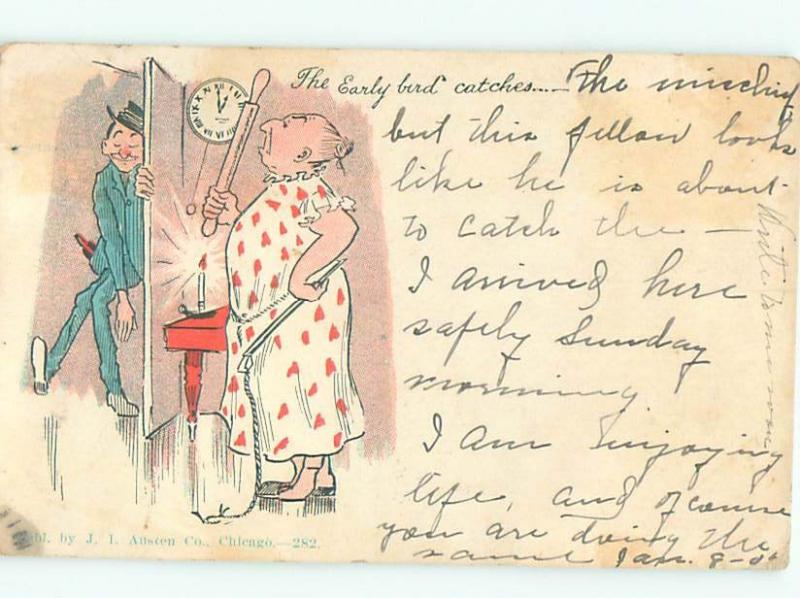 The Early bird catches....— The mischief
but this fellow looks
like he is about
to catch the —
I arrived here
safely Sunday
morning
I am enjoying
life, and ofcourse
you are doing the
same Jan. 8-06
Write to me soon
XII I II III IX X XI
bl. by J. I. Austen Co., Chicago.—282.